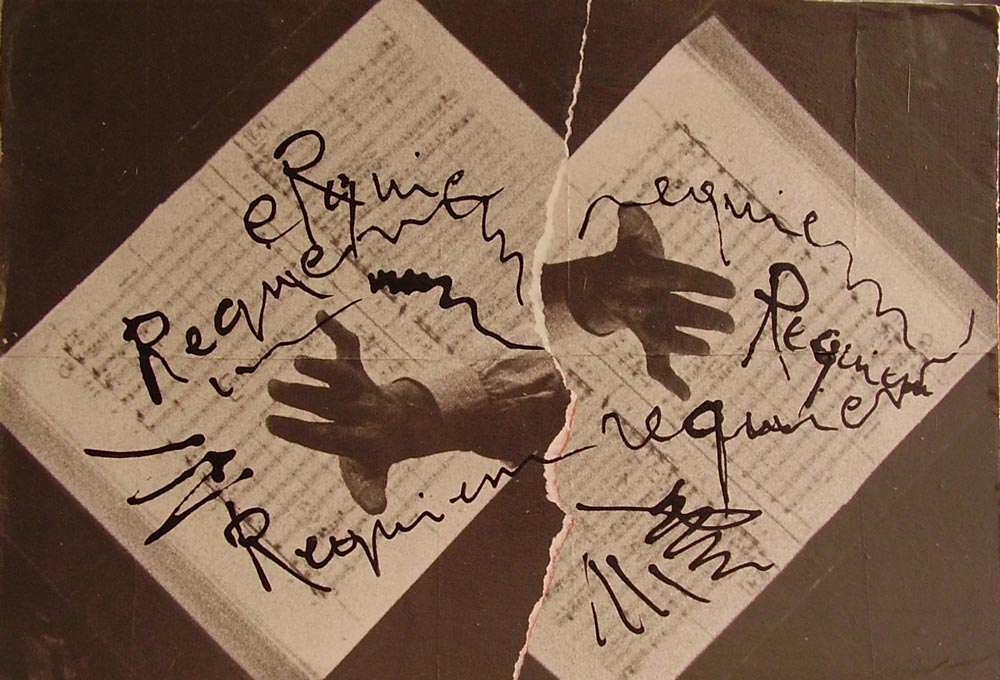 eRquiem
Requiem
requiem
Requiem
requiem
Requiem